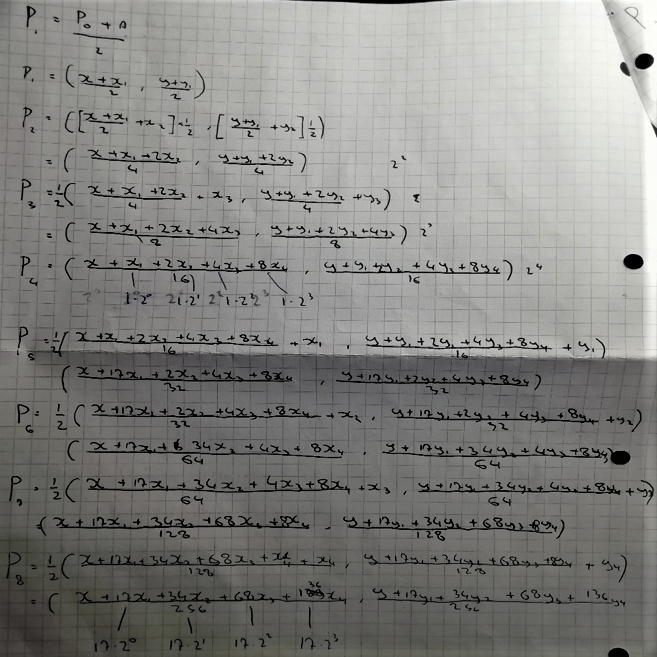 P₁ = (P₀ + A)/2
P₁ = ((x + x₁)/2 , (y + y₁)/2)
P₂ = ([(x + x₁)/2 + x₂]·1/2 , [(y + y₁)/2 + y₂] 1/2)
= ((x + x₁ + 2x₂)/4 , (y + y₁ + 2y₂)/4) 2²
P₃ = 1/2((x + x₁ + 2x₂)/4 + x₃ , (y + y₁ + 2y₂)/4 + y₃)
= ((x + x₁ + 2x₂ + 4x₃)/8 , (y + y₁ + 2y₂ + 4y₃)/8) 2³
P₄ = ((x + x₁ + 2x₂ + 4x₃ + 8x₄)/16 , (y + y₁ + 2y₂ + 4y₃ + 8y₄)/16) 2⁴
1·2⁰ 1·2¹ 1·2² 1·2³
P₅ = 1/2((x + x₁ + 2x₂ + 4x₃ + 8x₄)/16 + x₁ , (y + y₁ + 2y₂ + 4y₃ + 8y₄)/16 + y₁)
((x + 17x₁ + 2x₂ + 4x₃ + 8x₄)/32 , (y + 17y₁ + 2y₂ + 4y₃ + 8y₄)/32)
P₆ = 1/2((x + 17x₁ + 2x₂ + 4x₃ + 8x₄)/32 + x₂ , (y + 17y₁ + 2y₂ + 4y₃ + 8y₄)/32 + y₂)
((x + 17x₁ + 34x₂ + 4x₃ + 8x₄)/64 , (y + 17y₁ + 34y₂ + 4y₃ + 8y₄)/64)
P₇ = 1/2((x + 17x₁ + 34x₂ + 4x₃ + 8x₄)/64 + x₃ , (y + 17y₁ + 34y₂ + 4y₃ + 8y₄)/64 + y₃)
((x + 17x₁ + 34x₂ + 68x₃ + 8x₄)/128 , (y + 17y₁ + 34y₂ + 68y₃ + 8y₄)/128)
P₈ = 1/2((x + 17x₁ + 34x₂ + 68x₃ + x₄)/128 + x₄ , (y + 17y₁ + 34y₂ + 68y₃ + 8y₄)/128 + y₄)
= ((x + 17x₁ + 34x₂ + 68x₃ + 136x₄)/256 , (y + 17y₁ + 34y₂ + 68y₃ + 136y₄)/256)
17·2⁰ 17·2¹ 17·2² 17·2³